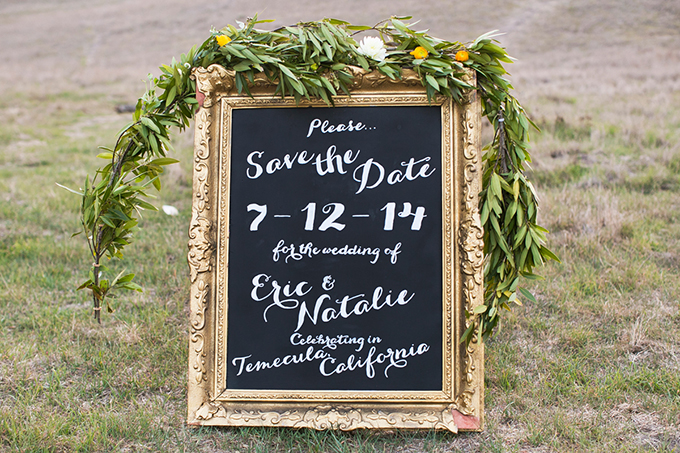 Please...
Save the Date
7-12-14
for the wedding of
Eric &
Natalie
Celebrating in
Temecula, California